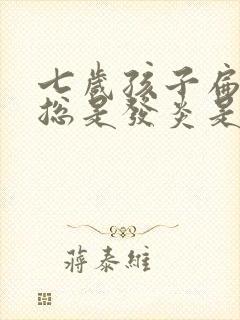 七歲孩子扁
總是發炎是
蔣泰維